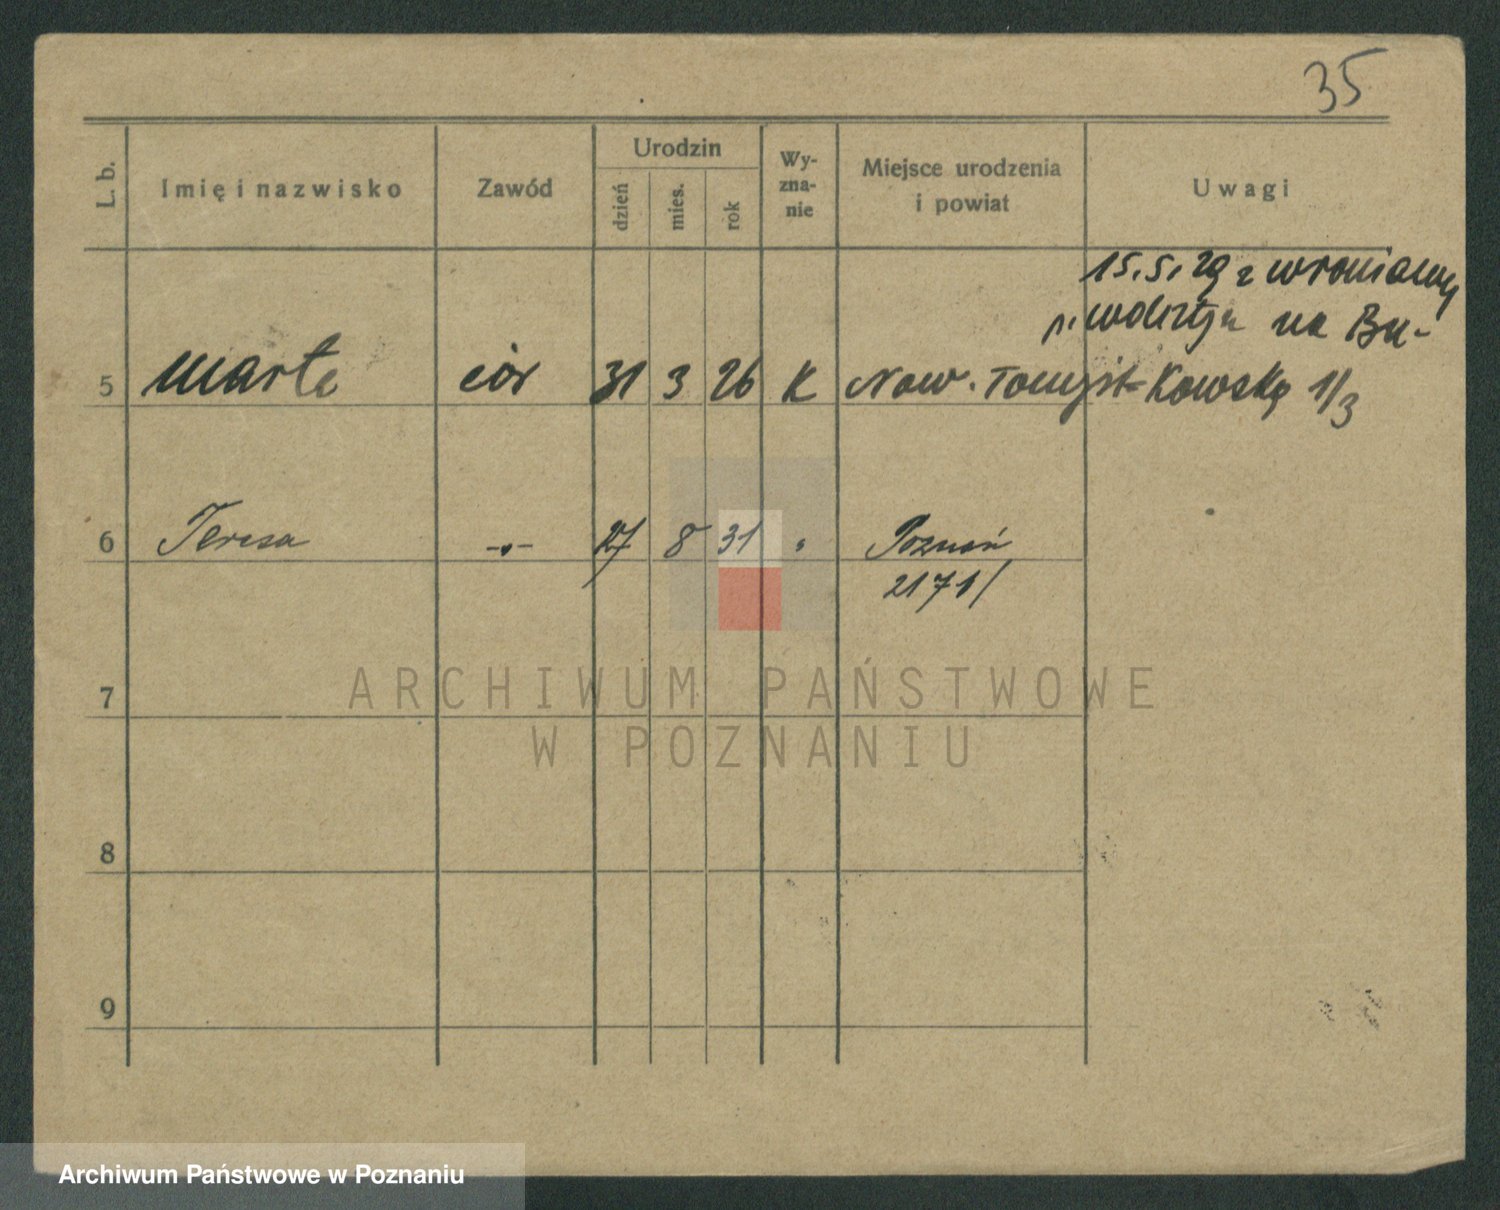 35
L. b.
Imię i nazwisko
Zawód
Urodzin
dzień
mies.
rok
Wy-
zna-
nie
Miejsce urodzenia
i powiat
Uwagi
15.5.29 z Wroniawy
p. Wolsztyn na Bu-
5 Marta cór 31 3 26 K Now. Tomyśl Kowską 1/3
6 Teresa -„- 27 8 31 „ Poznań
2171/
7
ARCHIWUM PAŃSTWOWE
W POZNANIU
8
9
Archiwum Państwowe w Poznaniu